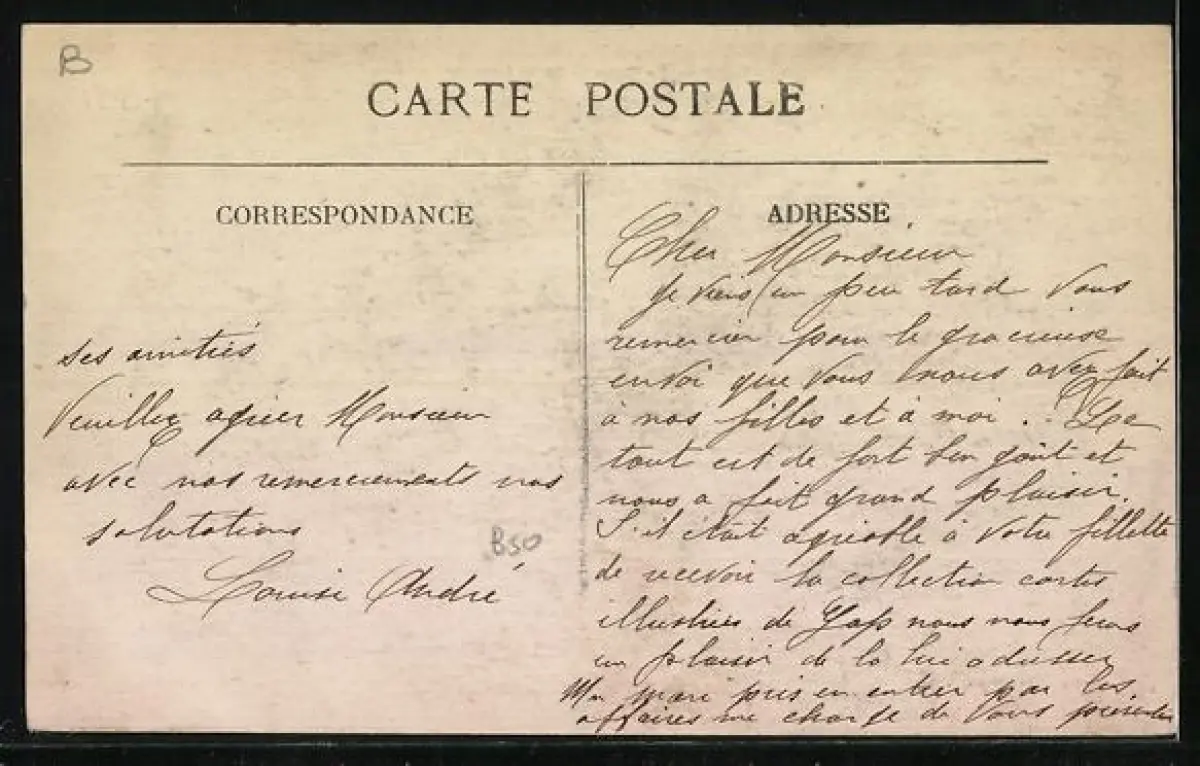 B
CARTE POSTALE
CORRESPONDANCE
ADRESSE
Cher Monsieur
Je viens un peu tard vous
remercier pour le gracieuse
envoi que vous nous avez fait
à nos filles et à moi. Le
tout est de fort bon goût et
nous a fait grand plaisir.
S'il était agréable à votre fillette
de recevoir la collection cartes
illustrées de Gap nous nous ferons
un plaisir de la lui adresser
Mon mari pris en entier par les
affaires me charge de vous présenter
ses amitiés
Veuillez agréer Monsieur
avec nos remerciements nos
salutations
Louise André
B50